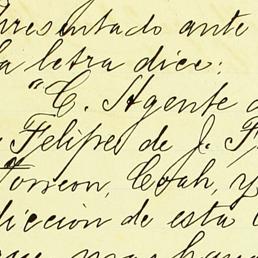 Presentado ante
la letra dice:
"C. Agente
Felipe de J.
Torreon, Coah, y
dicción de esta